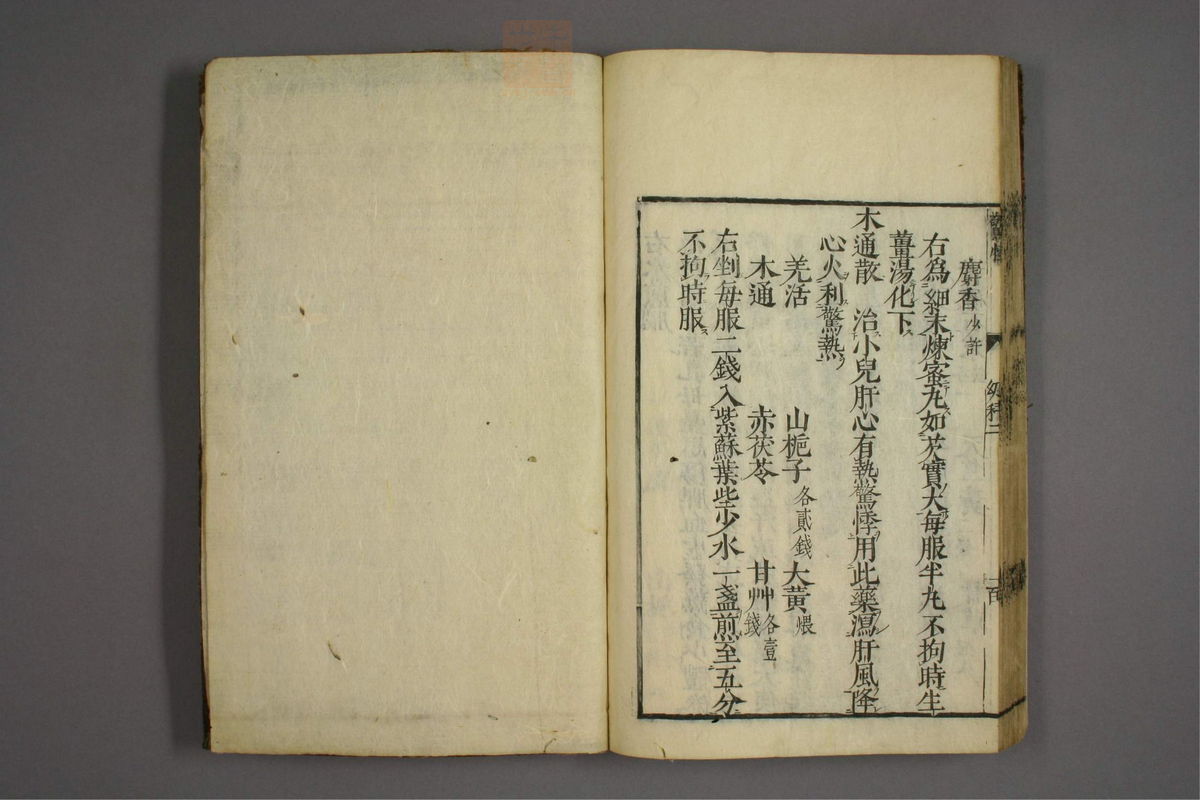 麝香少許
右為細末煉蜜丸如芡實大每服半丸不拘時生
薑湯化下
木通散 治小兒肝心有熱驚悸用此藥瀉肝風降
心火利驚熱
羌活 山梔子各貳錢 大黃煨
木通 赤茯苓 甘艸各壹錢
右剉每服二錢入紫蘇葉些少水一盞煎至五分
不拘時服
幼科二
百